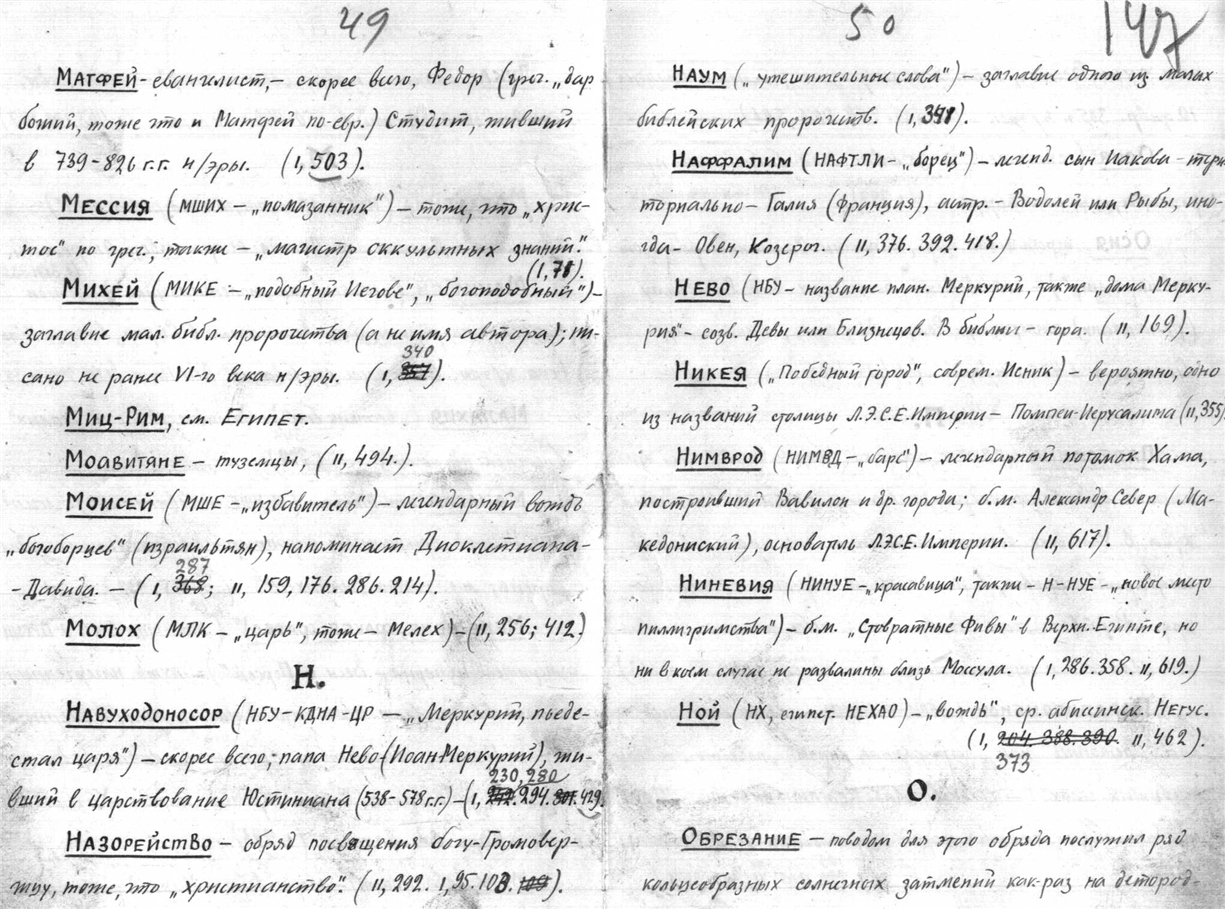 49
МАТФЕЙ - евангелист, - скорее всего, Федор (греч. „дар
божий, тоже что и Матфей по-евр.) Студит, живший
в 739-826 г.г. н/эры. (I, 503).
МЕССИЯ (МШИХ - „помазанник") - тоже, что „хрис-
тос" по греч., также - „магистр оккультных знаний."
(I, 78).
МИХЕЙ (МИКЕ - „подобный Иегове", „богоподобный") -
заглавие мал. библ. пророчества (а не имя автора); пи-
340
сано не ранее VI-го века н/эры. (I, 357).
МИЦ-РИМ, см. ЕГИПЕТ.
МОАВИТЯНЕ - туземцы, (II, 494.).
МОИСЕЙ (МШЕ - „избавитель") - легендарный вождь
„богоборцев" (израильтян), напоминает Диоклетиана-
287
- Давида. - (I, 368; II, 159, 176. 286. 214).
МОЛОХ (МЛК - „царь", тоже - Мелех) - (II, 256; 412)
Н.
НАВУХОДОНОСОР (НБУ-КДНА-ЦР — „Меркурий, пьеде-
стал царя") - скорее всего, папа Нево-(Иоан-Меркурий), жи-
230, 280
вший в царствование Юстиниана (538-578 г.г.) - (I, 294. 429)
НАЗОРЕЙСТВО - обряд посвящения богу-Громовер-
жцу, тоже, что „христианство". (II, 292. I, 95. 103. 109).
50
147
НАУМ („утешительные слова") - заглавие одного из малых
библейских пророчеств. (I, 348).
НАФФАЛИМ (НАФТЛИ - „борец") - легенд. сын Иакова - терри
ториально - Галия (Франция), астр. - Водолей или Рыбы, ино-
гда - Овен, Козерог. (II, 376. 392. 418.)
НЕВО (НБУ - название план. Меркурий, также „дома Мерку-
рия" - созв. Девы или Близнецов. В библии - гора. (II, 169).
НИКЕЯ („Победный город", соврем. Исник) - вероятно, одно
из названий столицы Л.Э.С.Е. Империи - Помпеи-Иерусалима (II, 355)
НИМВРОД (НИМВД - „барс") - легендарный потомок Хама,
построивший Вавилон и др. города; б.м. Александр Север (Ма-
кедониский), основатль Л.Э.С.Е. Империи. (II, 617).
НИНЕВИЯ (НИНУЕ - „красавица", также - Н-НУЕ - „новое место
пиллигримства") - б.м. „Стовратные Фивы" в Верхн. Египте, но
ни в коем случае не развалины близь Моссула. (I, 286. 358. II, 619.)
НОЙ (НХ, египет. НЕХАО) - „вождь", ср. абиссинск. НЕГУС.
(I, 204. 388. 390. II, 462).
373
О.
ОБРЕЗАНИЕ - поводом для этого обряда послужил ряд
кольцеобразных солнечных затмений как-раз на детород-